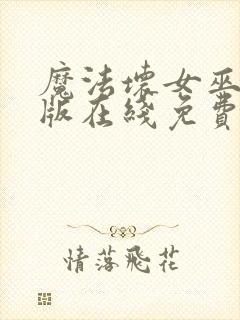 魔法壞女巫
版在綫免費
情落飛花